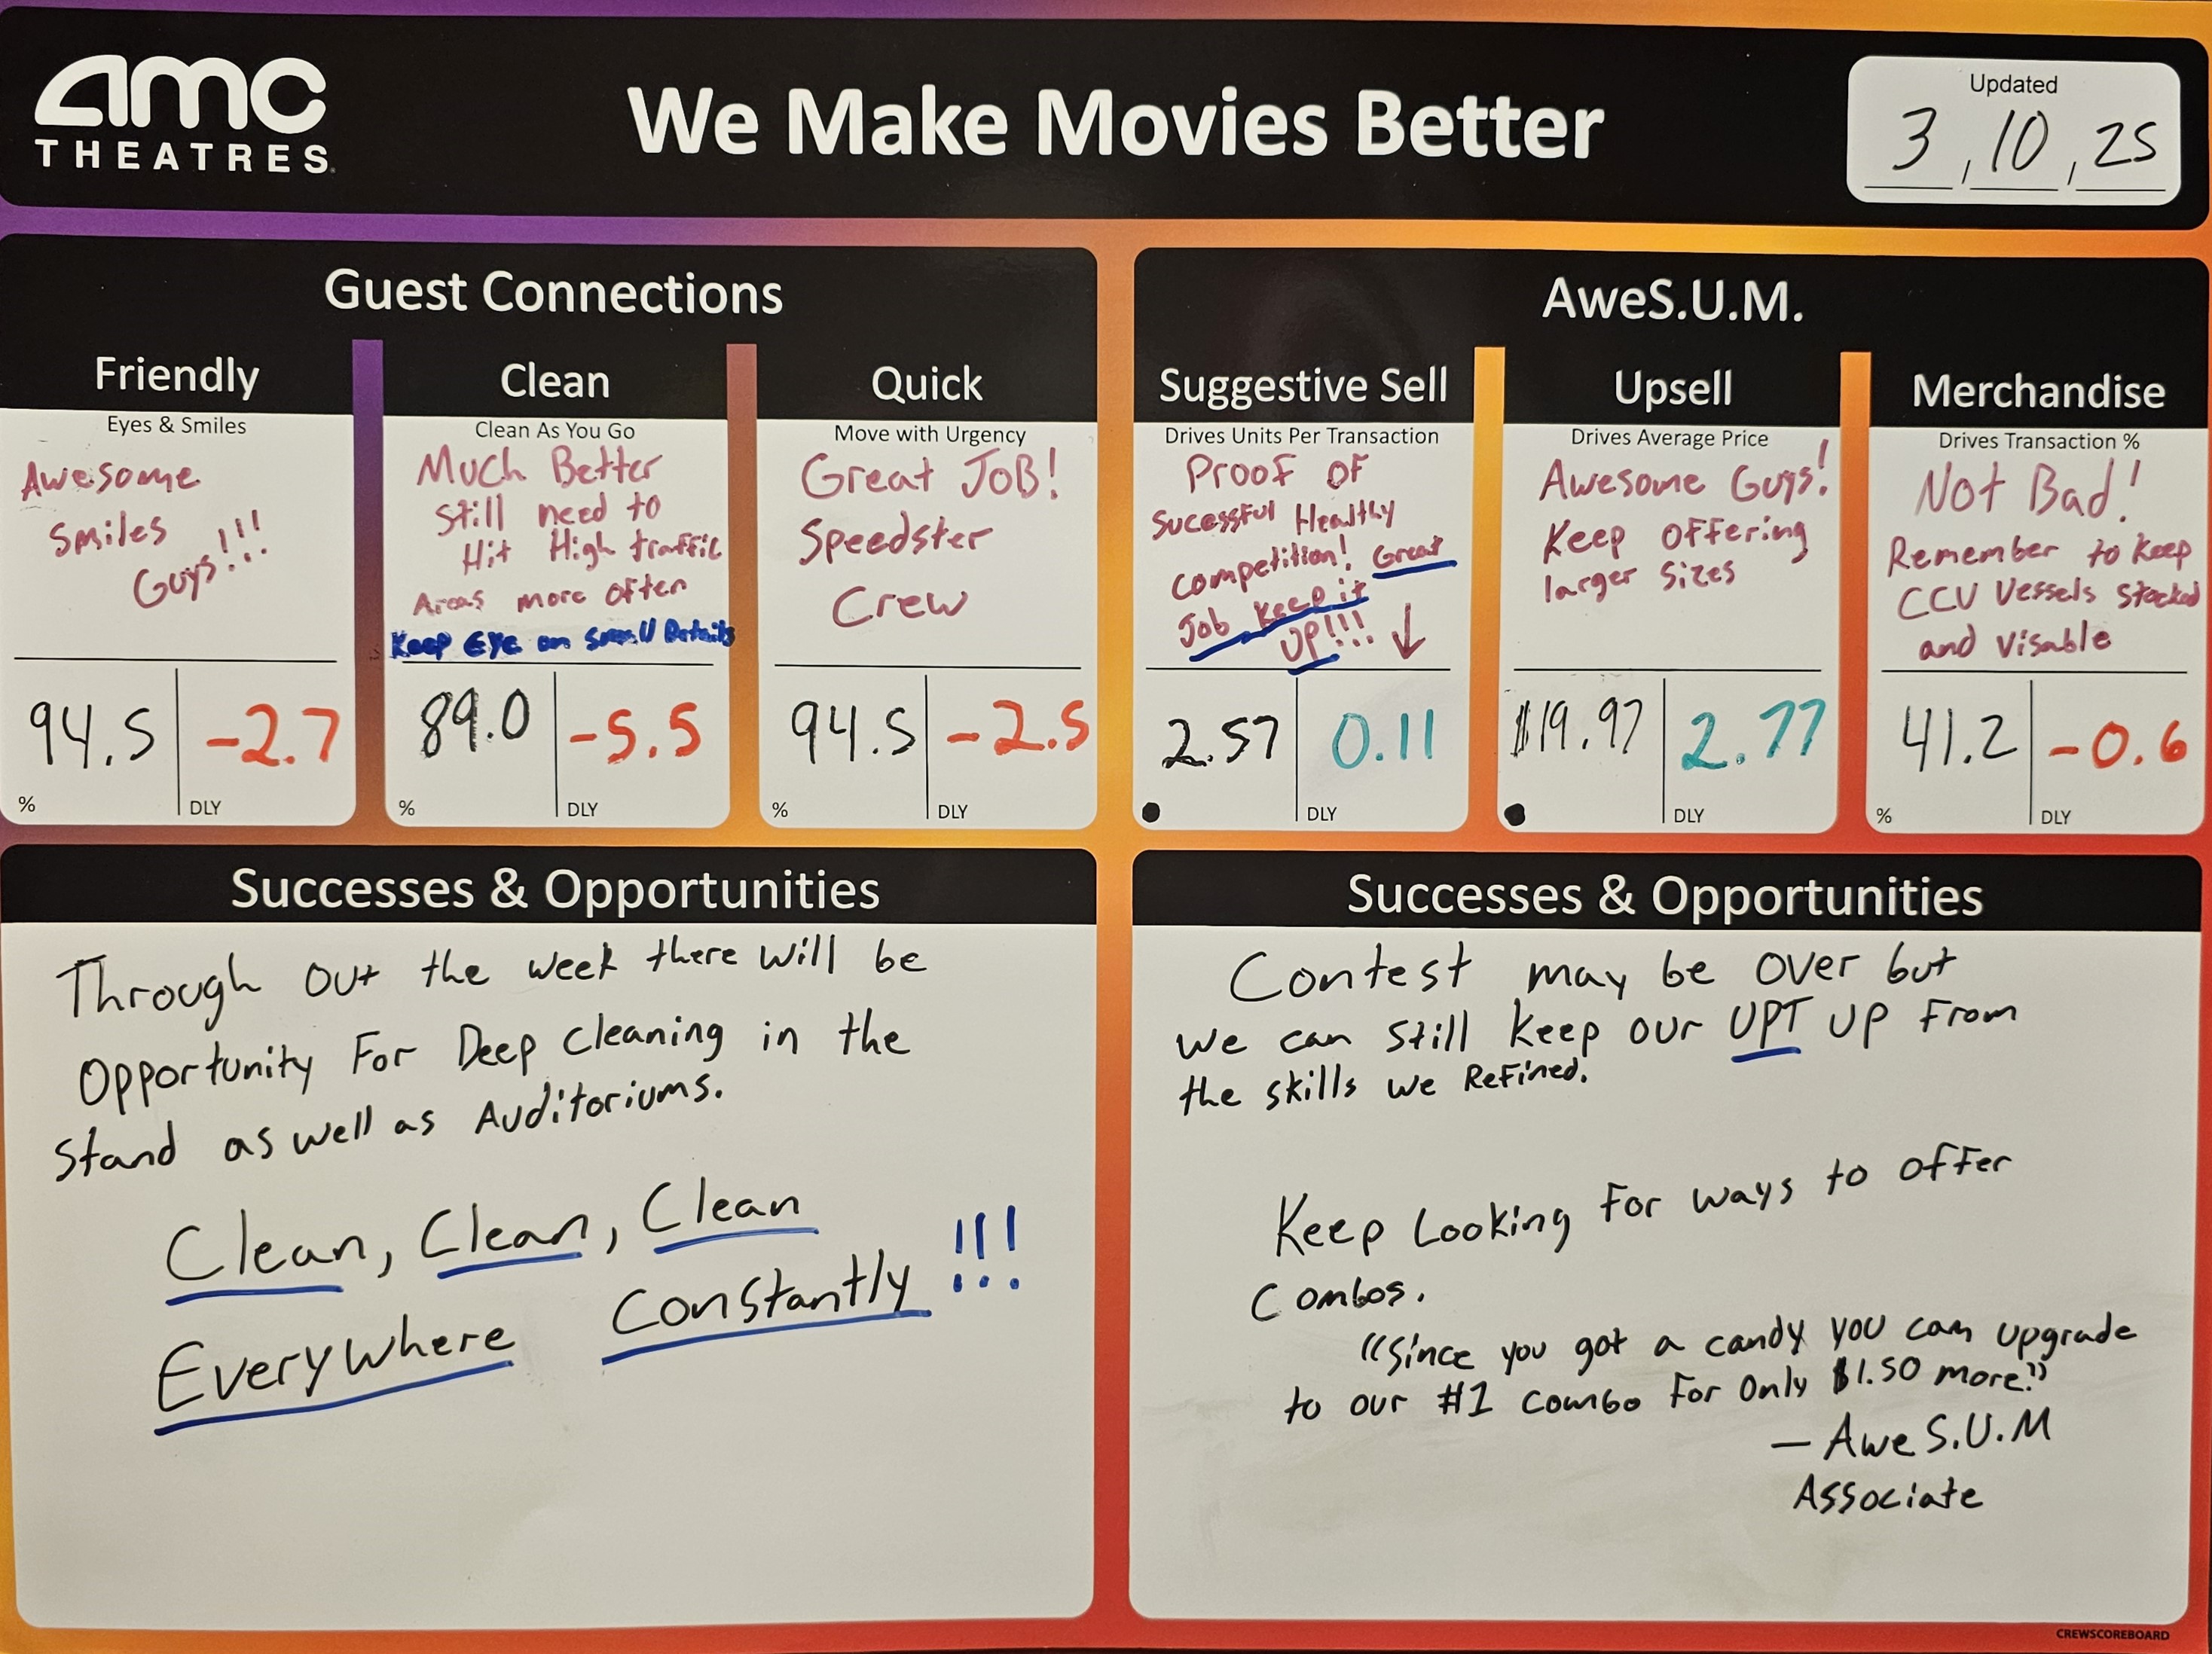 amc
THEATRES
We Make Movies Better
Updated
3, 10, 25
Guest Connections
Friendly
Eyes & Smiles
Awesome
Smiles
Guys!!!
94.5
-2.7
%
DLY
Clean
Clean As You Go
Much Better
Still need to
Hit High traffic
Areas more often
Keep Eye on Small Details
89.0
-5.5
%
DLY
Quick
Move with Urgency
Great JOB!
Speedster
Crew
94.5
-2.5
%
DLY
AweS.U.M.
Suggestive Sell
Drives Units Per Transaction
Proof of
Sucessful Healthy
competition! Great
Job Keep it
UP!!!
2.57
0.11
DLY
Upsell
Drives Average Price
Awesome Guys!
Keep offering
larger sizes
$19.97
2.77
DLY
Merchandise
Drives Transaction %
Not Bad!
Remember to Keep
CCV Vessels stocked
and visable
41.2
-0.6
%
DLY
Successes & Opportunities
Through out the week there will be
Opportunity For Deep cleaning in the
Stand as well as Auditoriums.
Clean, Clean, Clean
Everywhere Constantly!!!
Successes & Opportunities
Contest may be over but
we can still keep our UPT up from
the skills we Refined.
Keep Looking For ways to offer
Combos.
"Since you got a candy you can upgrade
to our #1 combo for only $1.50 more."
— Awe S.U.M
Associate
CREWSCOREBOARD